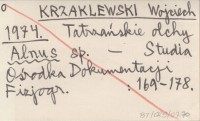 KRZAKLEWSKI Wojciech
1974. Tatrzańskie olchy
Alnus sp. — Studia
Ośrodka Dokumentacji
Fizjogr. : 169-178.